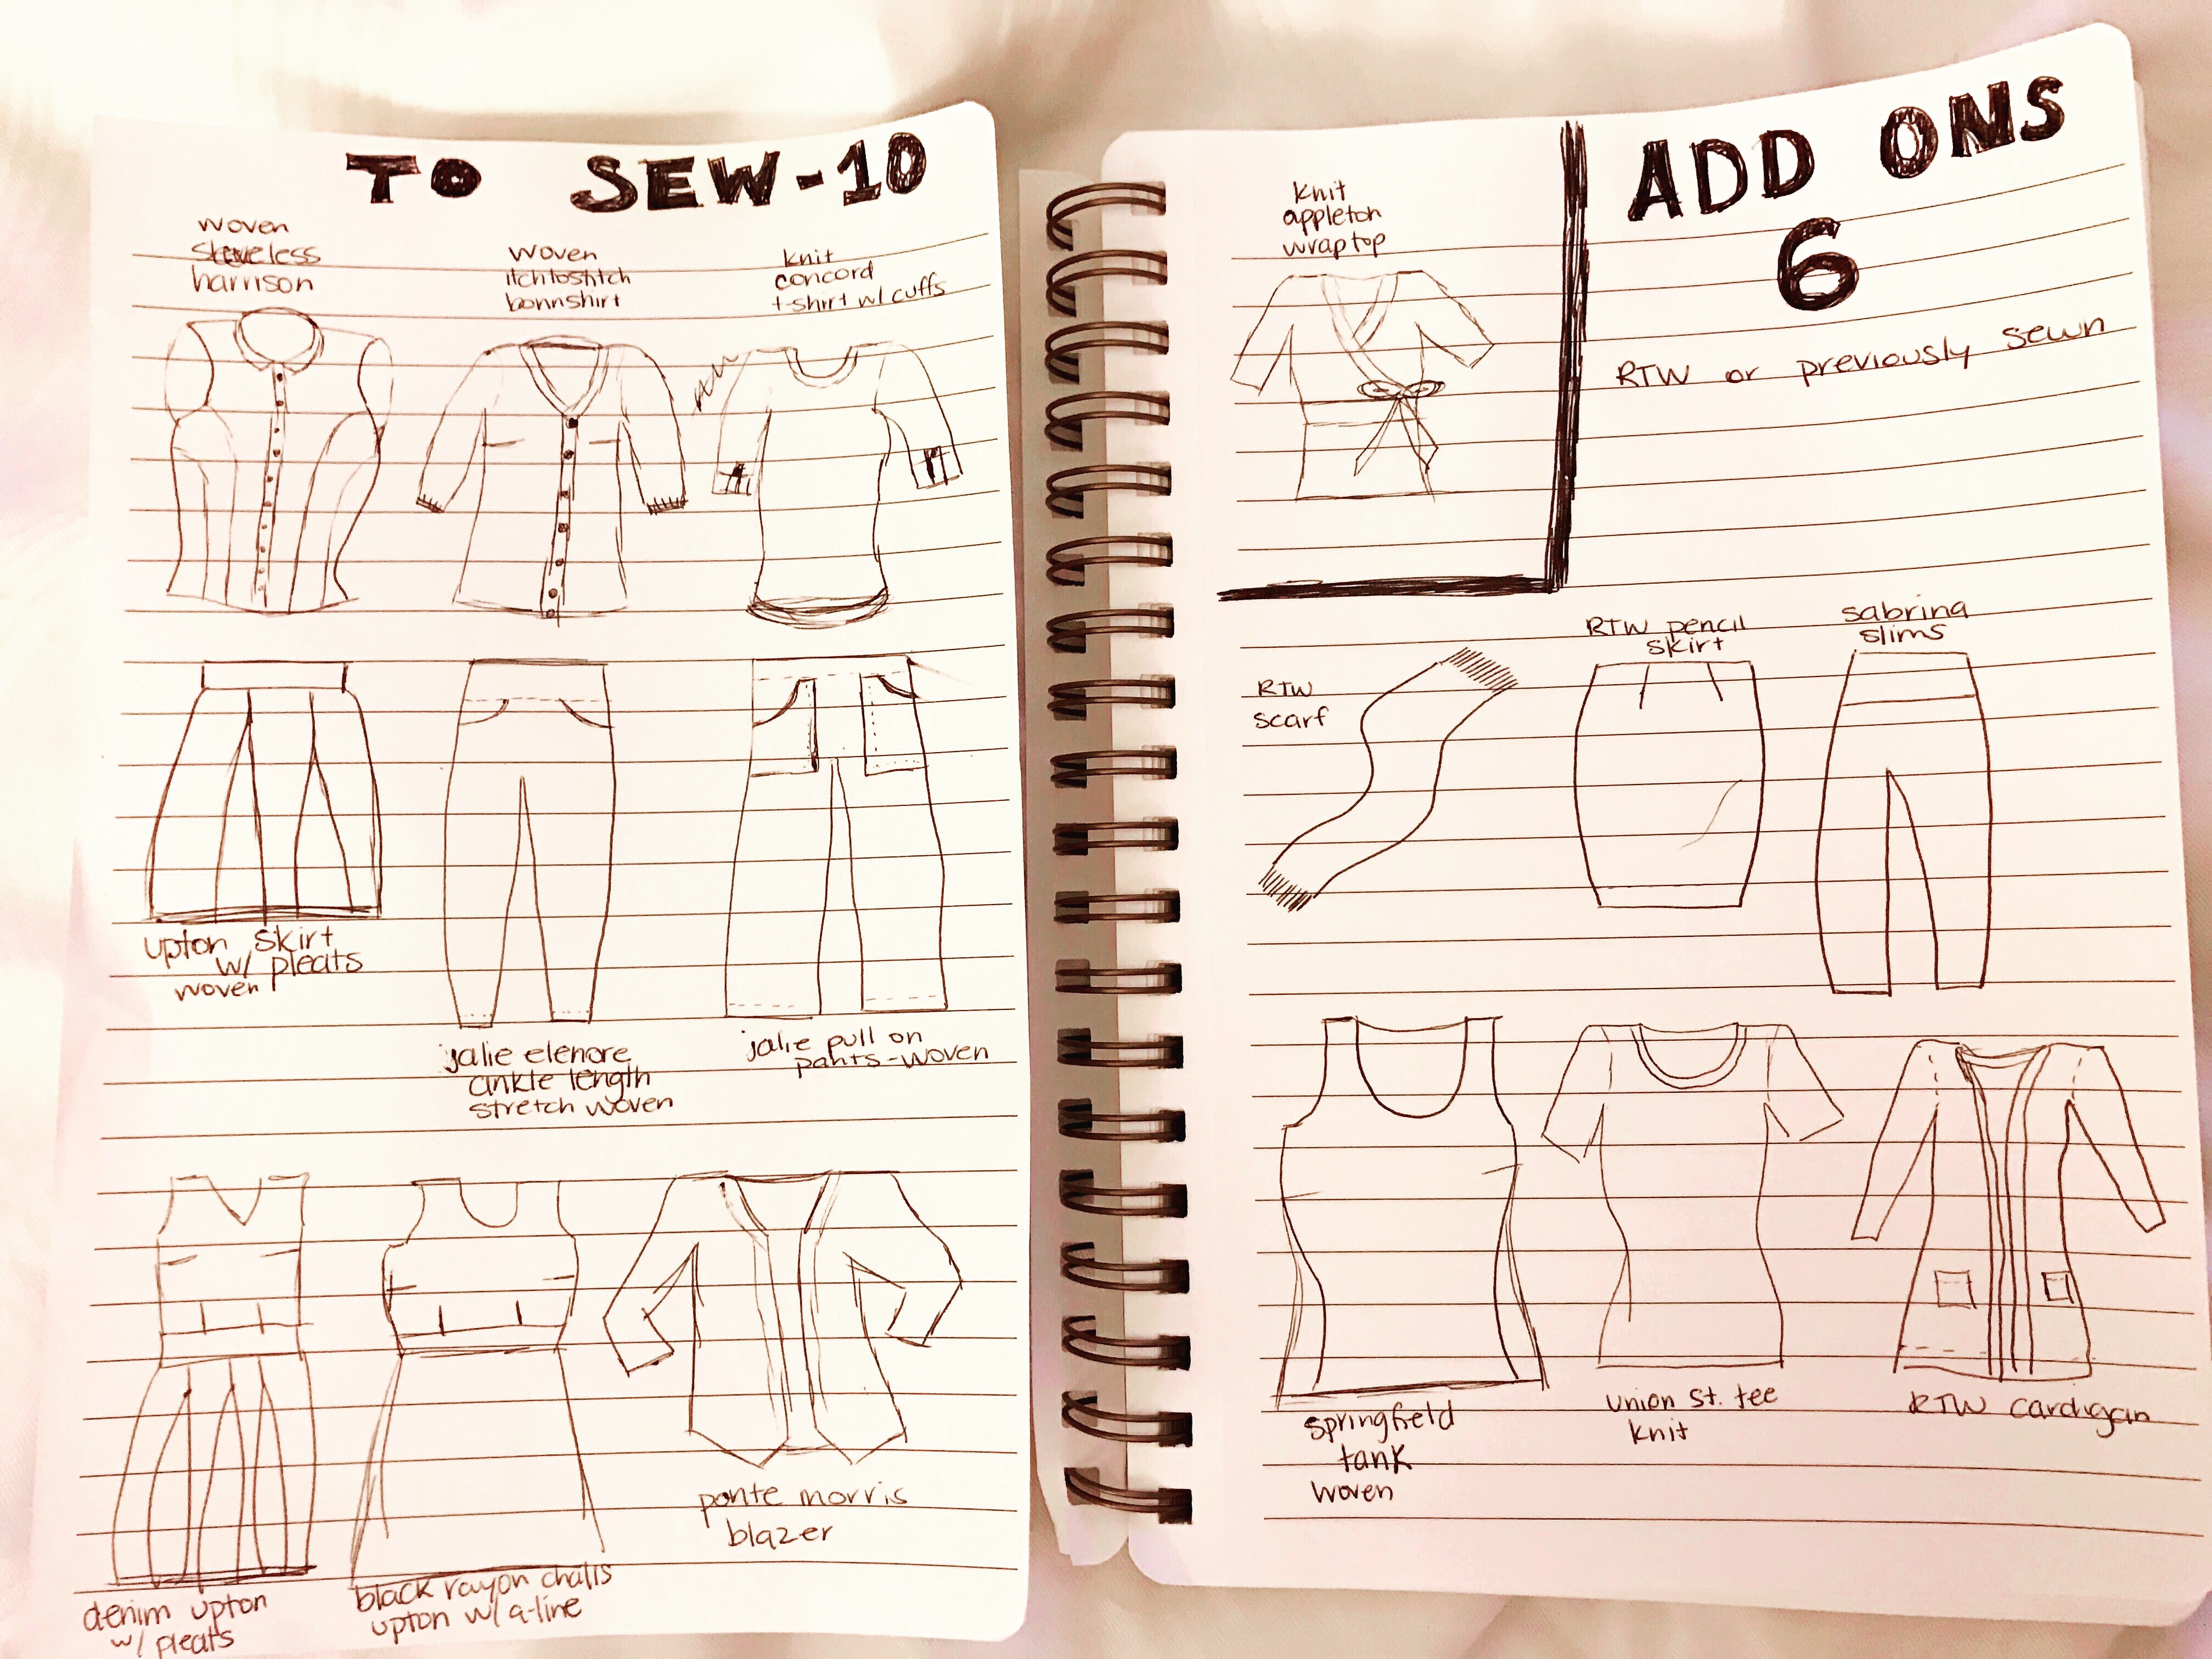 TO SEW-10
woven
sleeveless
harrison
woven
itchtostitch
bonnshirt
knit
concord
t-shirt w/ cuffs
upton skirt
w/ pleats
woven
jalie elenore
ankle length
stretch woven
jalie pull on
pants-woven
denim upton
w/ pleats
black rayon challis
upton w/ a-line
ponte morris
blazer
knit
appleton
wrap top
ADD ONS
6
RTW or previously sewn
RTW
scarf
RTW pencil
skirt
sabrina
slims
springfield
tank
woven
union st. tee
knit
RTW cardigan